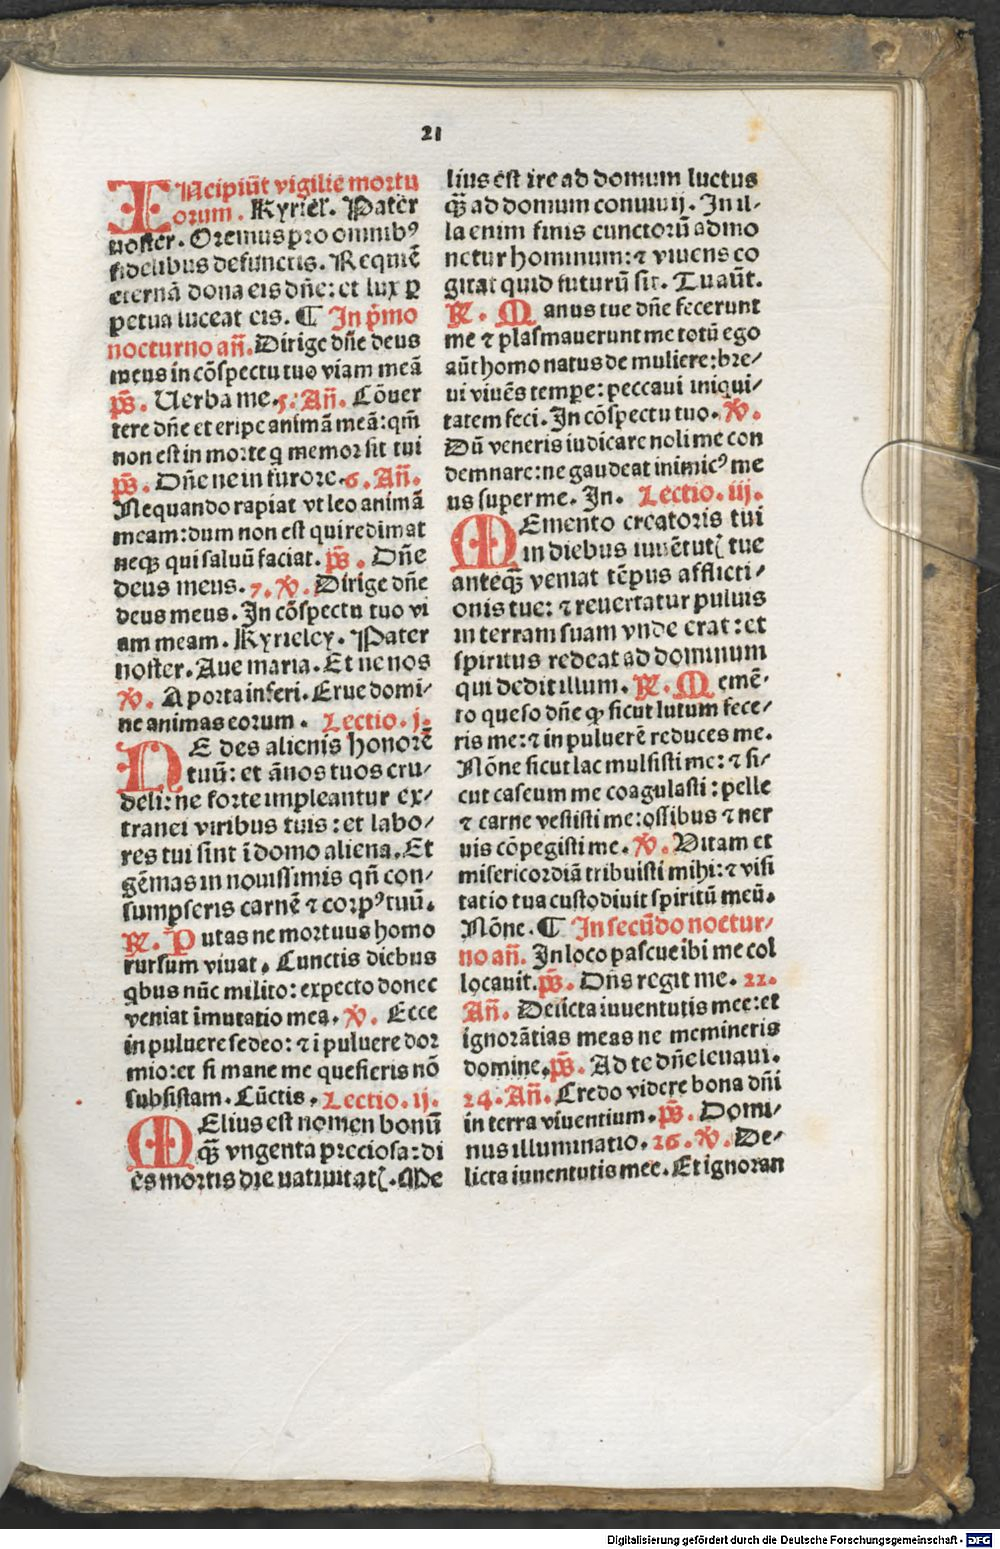 21
INcipiūt vigilie mortu
orum. Kyriel. Pater
noster. Oremus pro omnibꝰ
fidelibus defunctis. Requiē
eternā dona eis dn̄e: et lux ꝑ
petua luceat eis. ¶ In p̄mo
nocturno añ. Dirige dn̄e deus
meus in cōspectu tuo viam meā
p̄s. Uerba me. 5. Añ. Cōuer
tere dn̄e et eripe animā meā: qm̄
non est in morte q memor sit tui
p̄s. Dn̄e ne in furore. 6. Añ.
Nequando rapiat vt leo animā
meam: dum non est qui redimat
neqꝫ qui saluū faciat. p̄s. Dn̄e
deus meus. 7. ℣. Dirige dn̄e
deus meus. In cōspectu tuo vi
am meam. Kyrieley. Pater
noster. Aue maria. Et ne nos
℣. A porta inferi. Erue domi⸗
ne animas eorum. Lectio. j.
NE des alienis honorē
tuū: et ānos tuos cru⸗
deli: ne forte impleantur ex⸗
tranei viribus tuis: et labo⸗
res tui sint ī domo aliena. Et
gēmas in nouissimis qn̄ con⸗
sumpseris carnē ⁊ corpꝰ tuū.
℟. Putas ne mortuus homo
rursum viuat. Cunctis diebus
qbus nūc milito: expecto donec
veniat īmutatio mea. ℣. Ecce
in puluere sedeo: ⁊ ī puluere dor
mio: et si mane me quesieris nō
subsistam. Cūctis. Lectio. ij.
MElius est nomen bonū
qꝫ̄ vngenta preciosa: di
es mortis die natiuitatꝭ. Me
lius est ire ad domum luctus
qꝫ̄ ad domum conuiuij. In il⸗
la enim finis cunctorū admo
netur hominum: ⁊ viuens co
gitat quid futurū sit. Tuaūt.
℟. Manus tue dn̄e fecerunt
me ⁊ plasmauerunt me totū ego
aūt homo natus de muliere: bre⸗
ui viuēs tempe: peccaui iniqui⸗
tatem feci. In cōspectu tuo. ℣.
Dū veneris iudicare noli me con
demnare: ne gaudeat inimicꝰ me
us super me. In. Lectio. iij.
MEmento creatoris tui
in diebus iuuētutꝭ tue
anteqꝫ̄ veniat tēpus afflicti⸗
onis tue: ⁊ reuertatur puluis
in terram suam vnde erat: et
spiritus redeat ad dominum
qui dedit illum. ℟. Memē⸗
to queso dn̄e ꝙ sicut lutum fece⸗
ris me: ⁊ in puluerē reduces me.
Nōne sicut lac mulsisti me: ⁊ si⸗
cut caseum me coagulasti: pelle
⁊ carne vestisti me: ossibus ⁊ ner
uis cōpegisti me. ℣. Uitam et
misericordiā tribuisti mihi: ⁊ visi
tatio tua custodiuit spiritū meū.
Nōne. ¶ In secūdo noctur⸗
no añ. In loco pascue ibi me col
locauit. p̄s. Dn̄s regit me. 22.
Añ. Delicta iuuentutis mee: et
ignorātias meas ne memineris
domine. p̄s. Ad te dn̄e leuaui.
24. Añ. Credo videre bona dn̄i
in terra viuentium. p̄s. Domi⸗
nus illuminatio. 26. ℣. De⸗
licta iuuentutis mee. Et ignoran
Digitalisierung gefördert durch die Deutsche Forschungsgemeinschaft - DFG